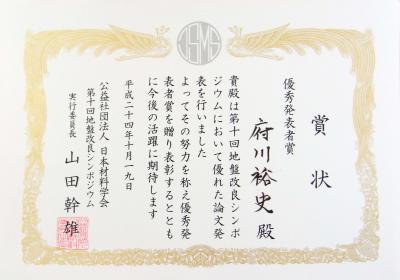 JSMS
賞状
優秀発表者賞
府川裕史殿
貴殿は第十回地盤改良シンポ
ジウムにおいて優れた論文発
表を行いました
よってその努力を称え優秀発
表者賞を贈り表彰するととも
に今後の活躍に期待します
平成二十四年十月一九日
公益社団法人 日本材料学会
第十回地盤改良シンポジウム
実行委員長 山田幹雄